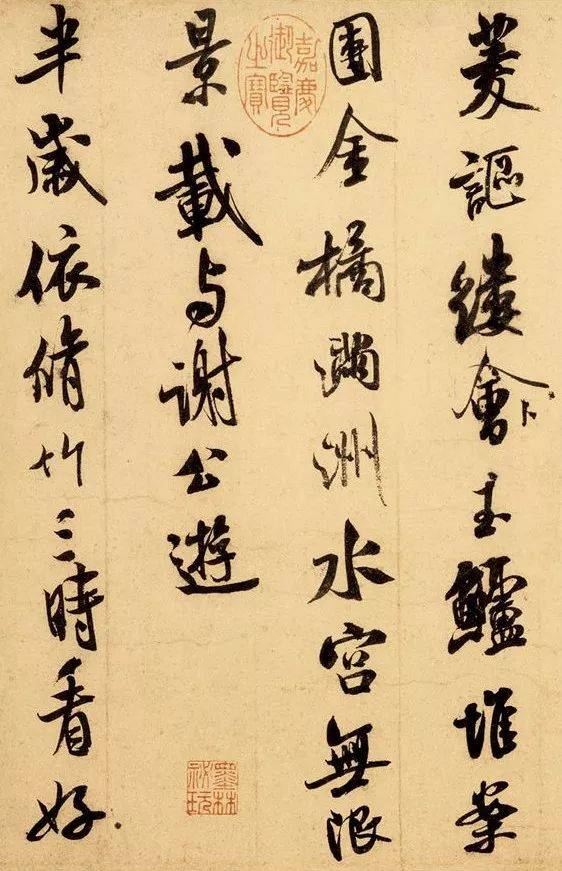 菱謳縷會玉鱸堆案
團金橘滿洲水宮無限
景載与謝公遊
半歲依脩竹三時看好
嘉慶
御覽
之寶
墨林
祕玩